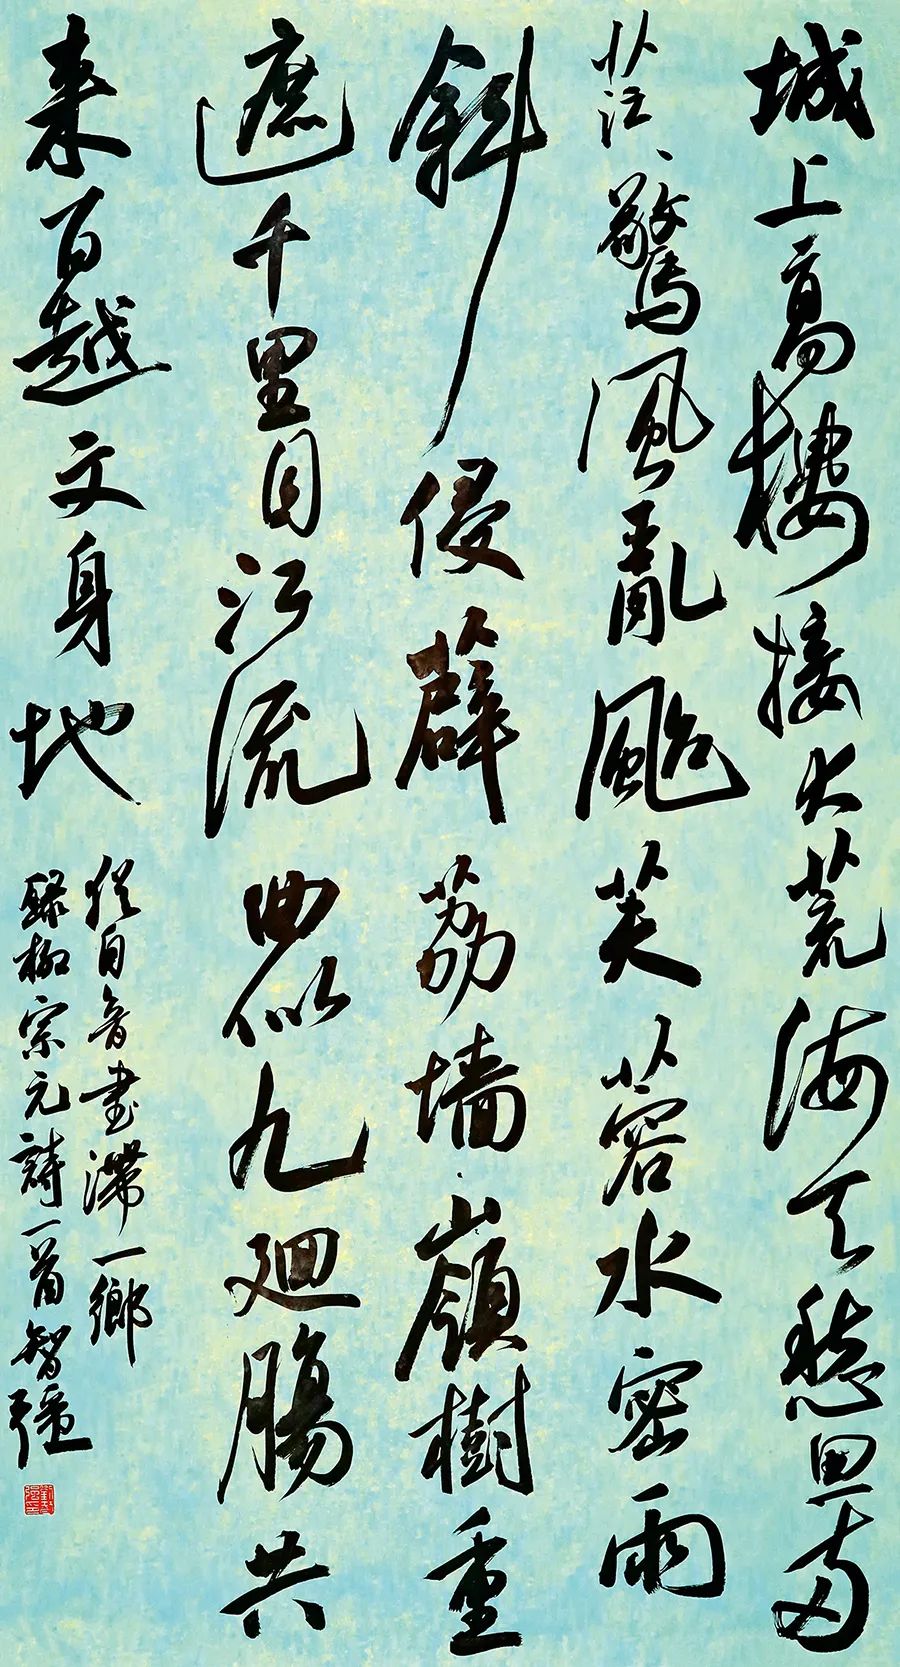 城上高樓接大荒海天愁思
茫、驚風亂颭芙蓉水密雨
斜侵薜荔墙嶺樹重
遮千里目江流曲似九廻腸共
来百越文身地
猶自音書滯一鄉
録柳宗元詩一首智强